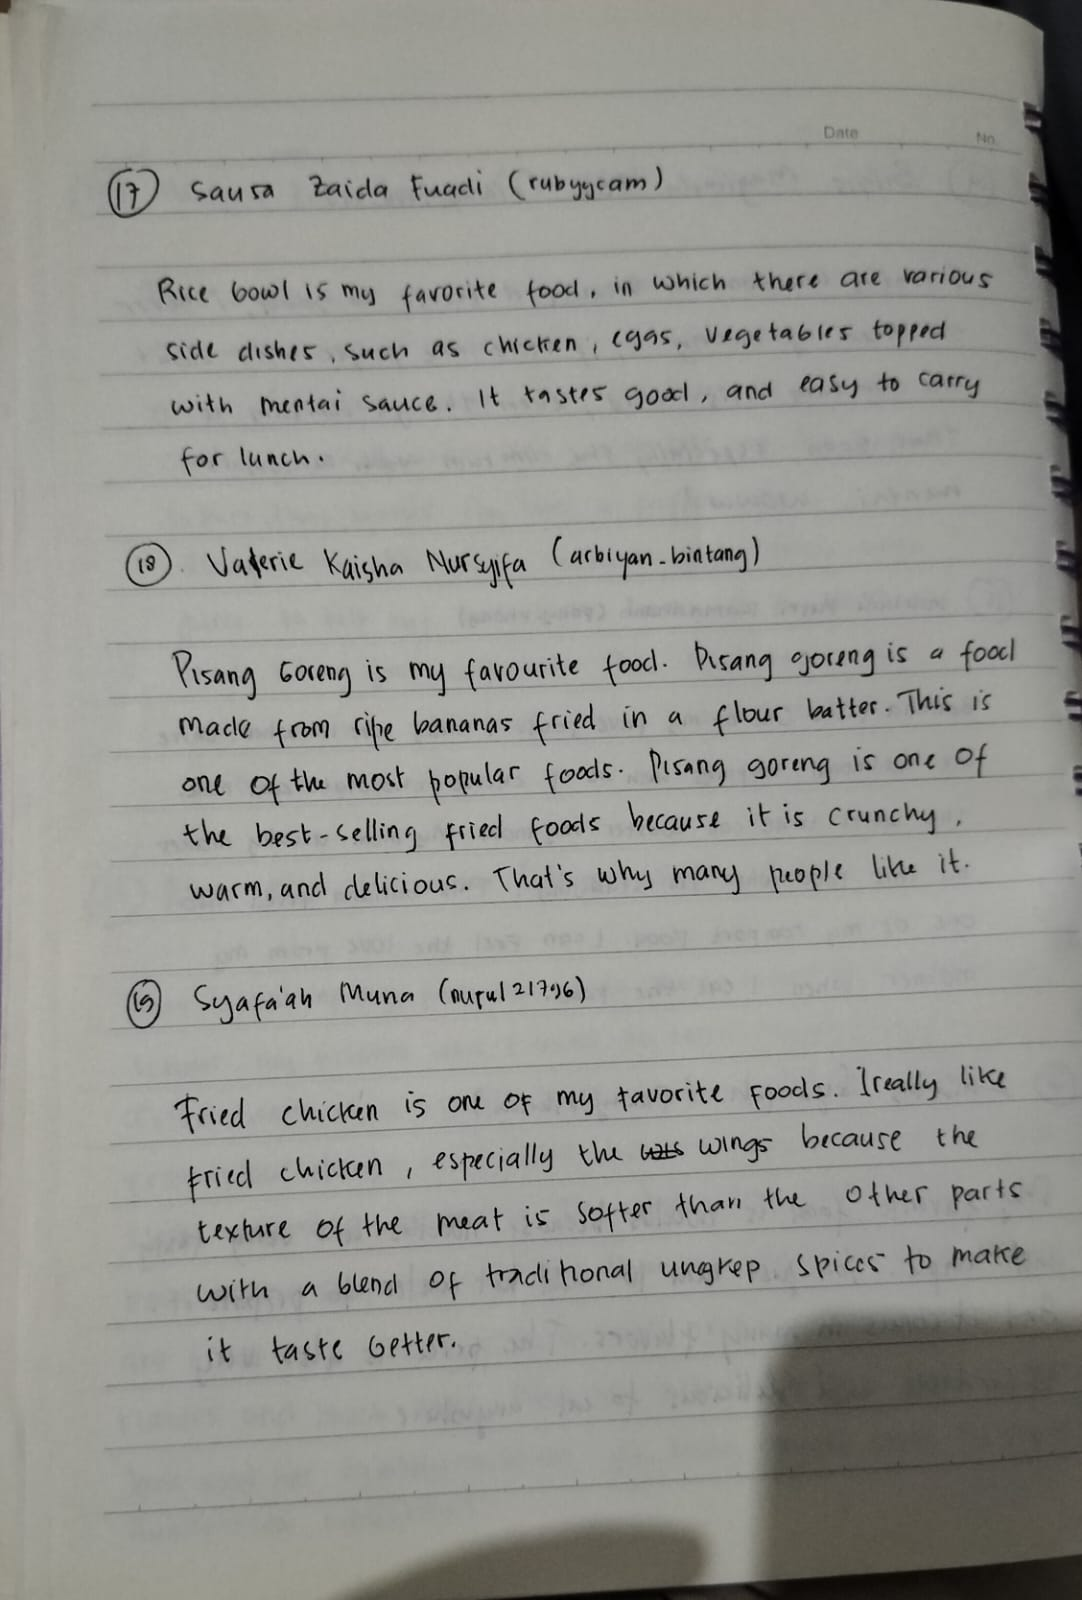 Date No.
17 Sausa Zaida Fuadi (rubyycam)
Rice bowl is my favorite food, in which there are various
side dishes, such as chicken, eggs, vegetables topped
with mentai sauce. It tastes good, and easy to carry
for lunch.
18. Valerie Kaisha Nursyifa (arbiyan_bintang)
Pisang Goreng is my favourite food. Pisang goreng is a food
made from ripe bananas fried in a flour batter. This is
one of the most popular foods. Pisang goreng is one of
the best-selling fried foods because it is crunchy,
warm, and delicious. That's why many people like it.
19 Syafa'ah Muna (nurul21796)
Fried chicken is one of my favorite foods. I really like
fried chicken, especially the wings because the
texture of the meat is softer than the other parts
with a blend of traditional ungkep spices to make
it taste better.